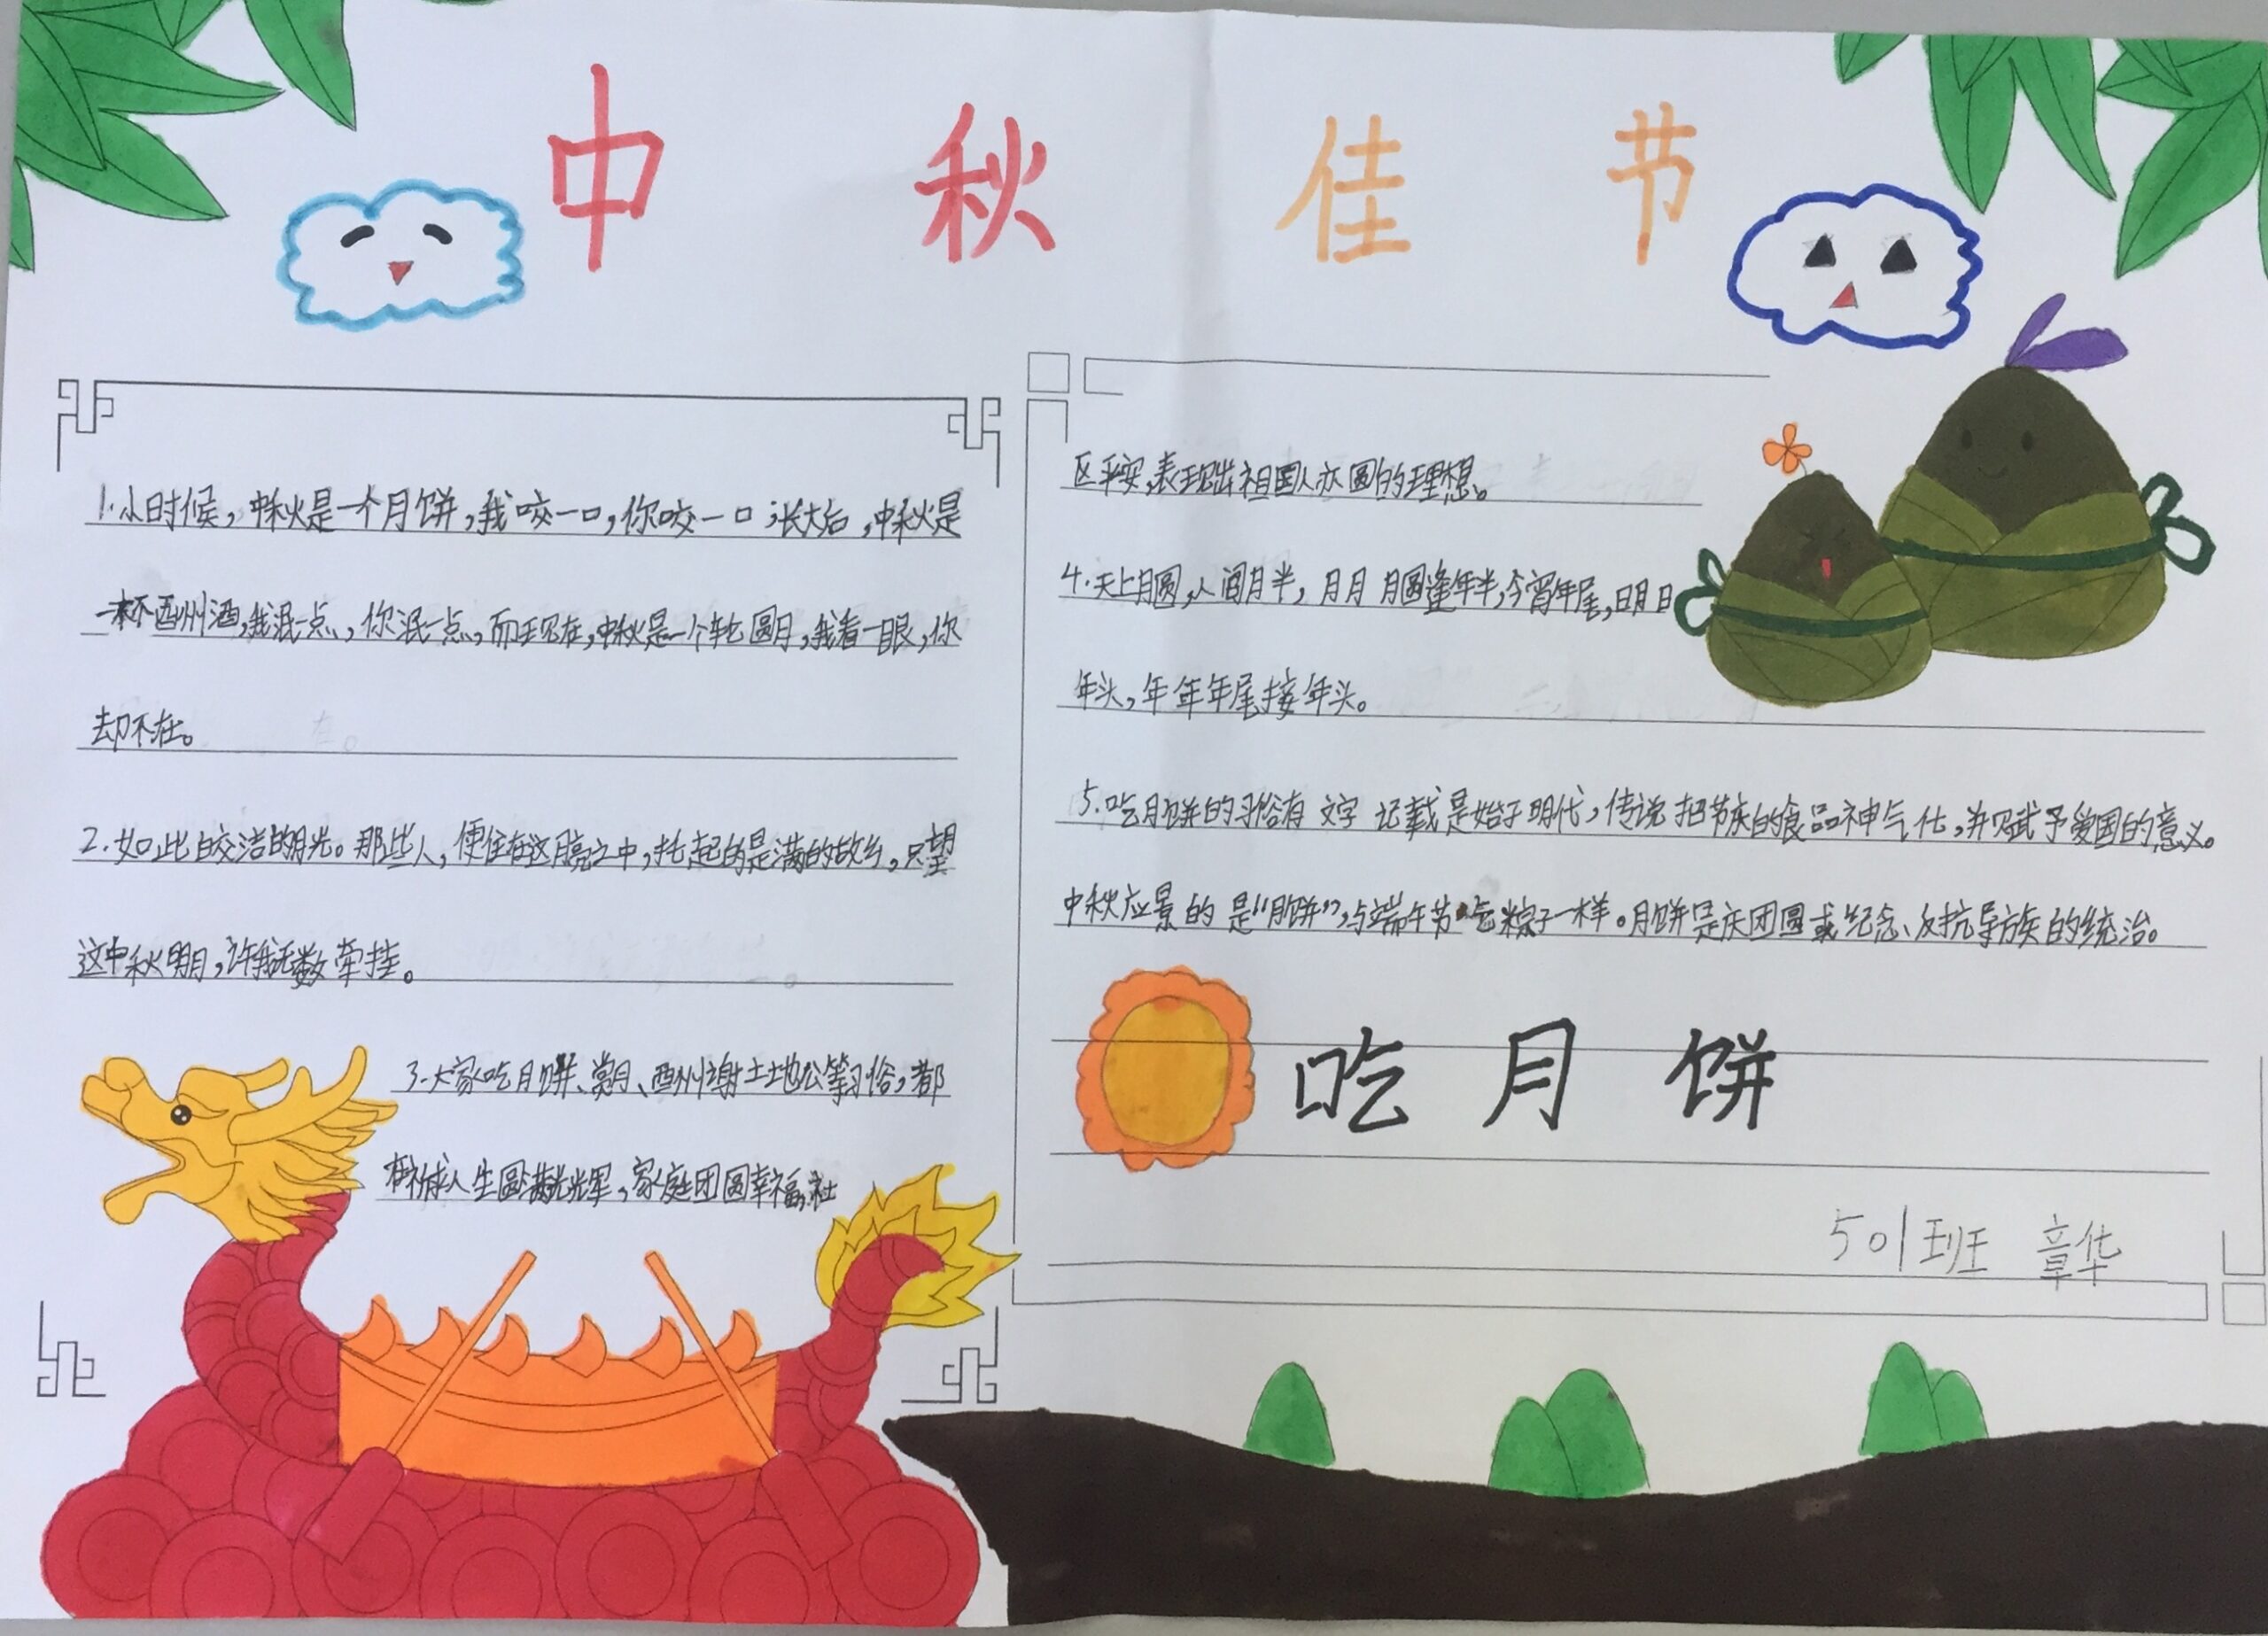 中秋佳节
1.小时候，中秋是一个月饼，我咬一口，你咬一口；张大后，中秋是
一杯酉州酒，我泯一点，你泯一点，而现在，中秋是一个轮圆月，我看一眼，你
却不在。
2.如此皎洁的月光。那些人，便住在这月亮之中，托起的是满的故乡，只望
这中秋明月，许我无数牵挂。
3.大家吃月饼、赏月、酉州谢土地公等习俗，都
祈求人生圆满光辉，家庭团圆幸福，社
区平安，表现出祖国人亦圆的理想。
4.天上月圆，人间月半，月月月圆逢年半，今宵年尾，明日
年头，年年年尾接年头。
5.吃月饼的习俗有文字记载是始于明代，传说把节庆的食品神气化，并赋予爱国的意义。
中秋应景的是“月饼”，与端午节吃粽子一样。月饼是庆团圆或纪念、反抗导族的统治。
吃月饼
501班 章华